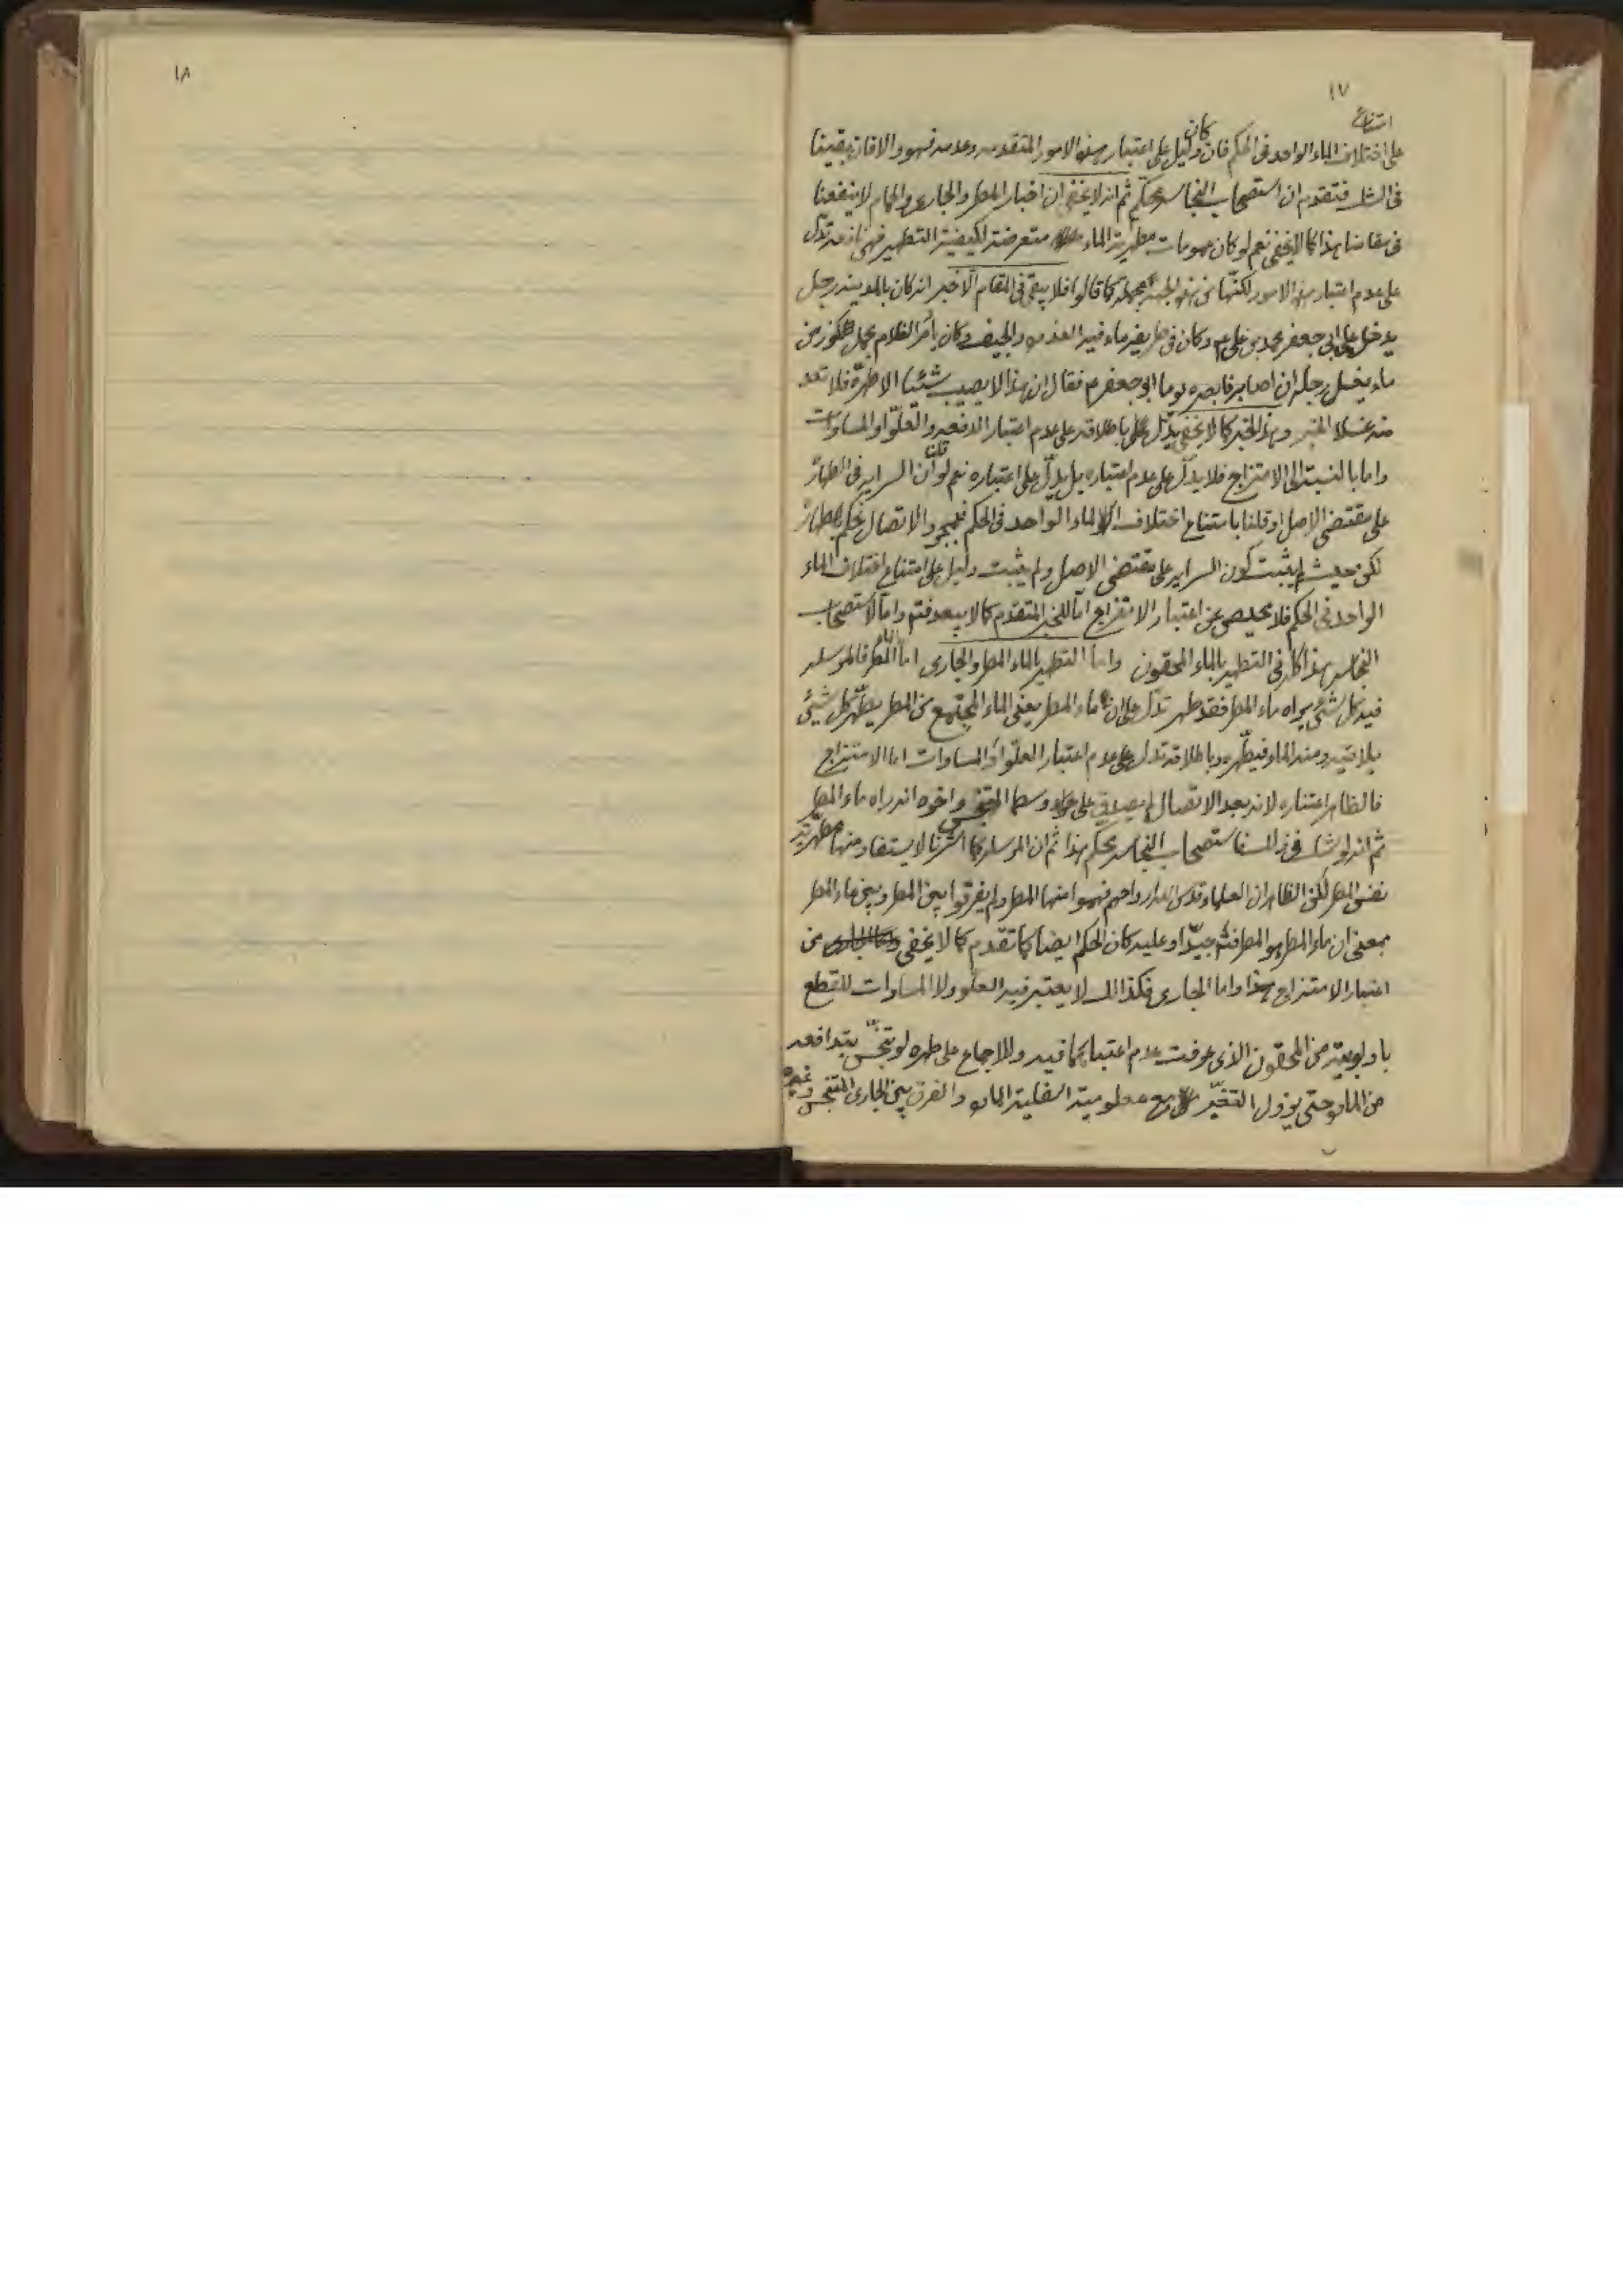 ١٧
امتناع
على اختلاف الماء الواحد فى الحكم فان كان دليل على اعتبار هذه الامور المتقدمه وعدمه فهو والا فان بقينا
فى الشك فتقدم ان استصحاب النجاسه محكّم ثم انه لا يخفى ان اخبار المطر والجارى والحمام لا ينفعنا
فى مقامنا هذا كما لا يخفى نعم لو كان عمومات مطهرية الماء متعرضة لكيفية التطهير فهى نازله تدلّ
على عدم اعتبار هذه الامور لكنّها من هذه الجهة مجملة كما قالوا فلا يبقى فى المقام الا خبر انه كان بالمدينه رجل
يدخل على ابى جعفر محمد بن على ع و كان فى طريقه ماء فيه العذره والجيف و كان يأمر الغلام يحمل كوز من
ماء يغسل رجله ان اصابه فابصره يوما ابو جعفر ع فقال ان هذا لا يصيب شيئا الا طهّره فلا تعد
منه غسلا الخبر وهذا الخبر كما لا يخفى يدّل باطلاقه على عدم اعتبار الدفعه والعلوّ او المساوات
واما بالنسبة الى الامتزاج فلا يدلّ على عدم اعتباره بل يدلّ على اعتباره نعم لو قلنا ان السرايه فى الطهارة
على مقتضى الاصل او قلنا بامتناع اختلاف الماء الواحد فى الحكم فبمجرد الاتصال نحكم بطهارة
لكن حيث لم يثبت كون السرايه على مقتضى الاصل ولم يثبت دليل على امتناع اختلاف الماء
الواحد فى الحكم فلا محيص عن اعتبار الامتزاج امّا للخبر المتقدم كما لا يبعد فتم واما لاستصحاب
النجاسه هذا كله فى التطهير بالماء المحقون واما التطهير بالماء المطر والجارى اما المطر فالمرسله
فيه كل شئ يراه ماء المطر فقد طهر تدّل على ان ماء المطر يعنى الماء المجتمع من المطر يطهّر كل شيئ
يلاقيه ومنه الماء فيطهّره و باطلاقه تدل على عدم اعتبار العلوّ او المساوات اما الامتزاج
فالظاهر اعتباره لانه بعد الاتصال لم يصدق على وسط المتنجس و اخره انه راه ماء المطر
ثم انه لو شك فى ذلك فاستصحاب النجاسه محكم هذا ثم ان المرسله كما اشرنا لا يستفاد منها مطهّرية
نفس المطر لكن الظاهر ان العلماء قدس الله ارواحهم فهموا منها المطر ولم يفرقوا بين المطر و بين ماء المطر
بمعنى ان ماء المطر هو المطر فتم جيّدا و عليه كان الحكم ايضا كما تقدم كما لا يخفى من
اعتبار الامتزاج هذا واما الجارى فكذالك لا يعتبر فيه العلو ولا المساوات للقطع
باولويته من المحقون الذى عرفت عدم اعتبارهما فيه وللاجماع على طهره لو تنجّس بتدافعه
من الماده حتى يزول التغيّر مع معلومية اسفلية الماده والفرق بين الجارى المتنجس وغيره
١٨